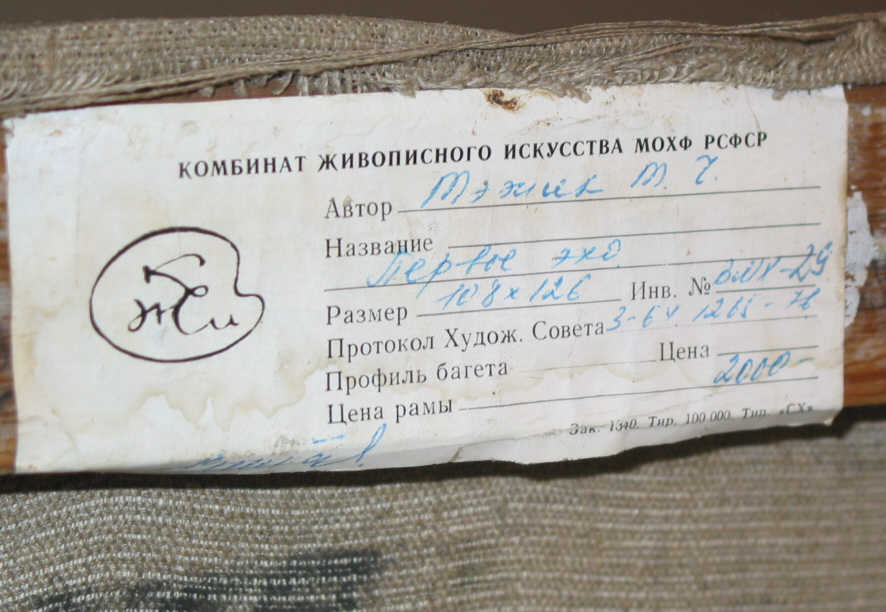 КОМБИНАТ ЖИВОПИСНОГО ИСКУССТВА МОХФ РСФСР
Автор Тэжик М. Г.
Название
Первое эхо
Размер 108 x 126 Инв. №
Протокол Худож. Совета 3-64 1265-78
Профиль багета Цена
2000-
Цена рамы
Зак. 1340. Тир. 100 000. Тип. «СХ»
КЖИ